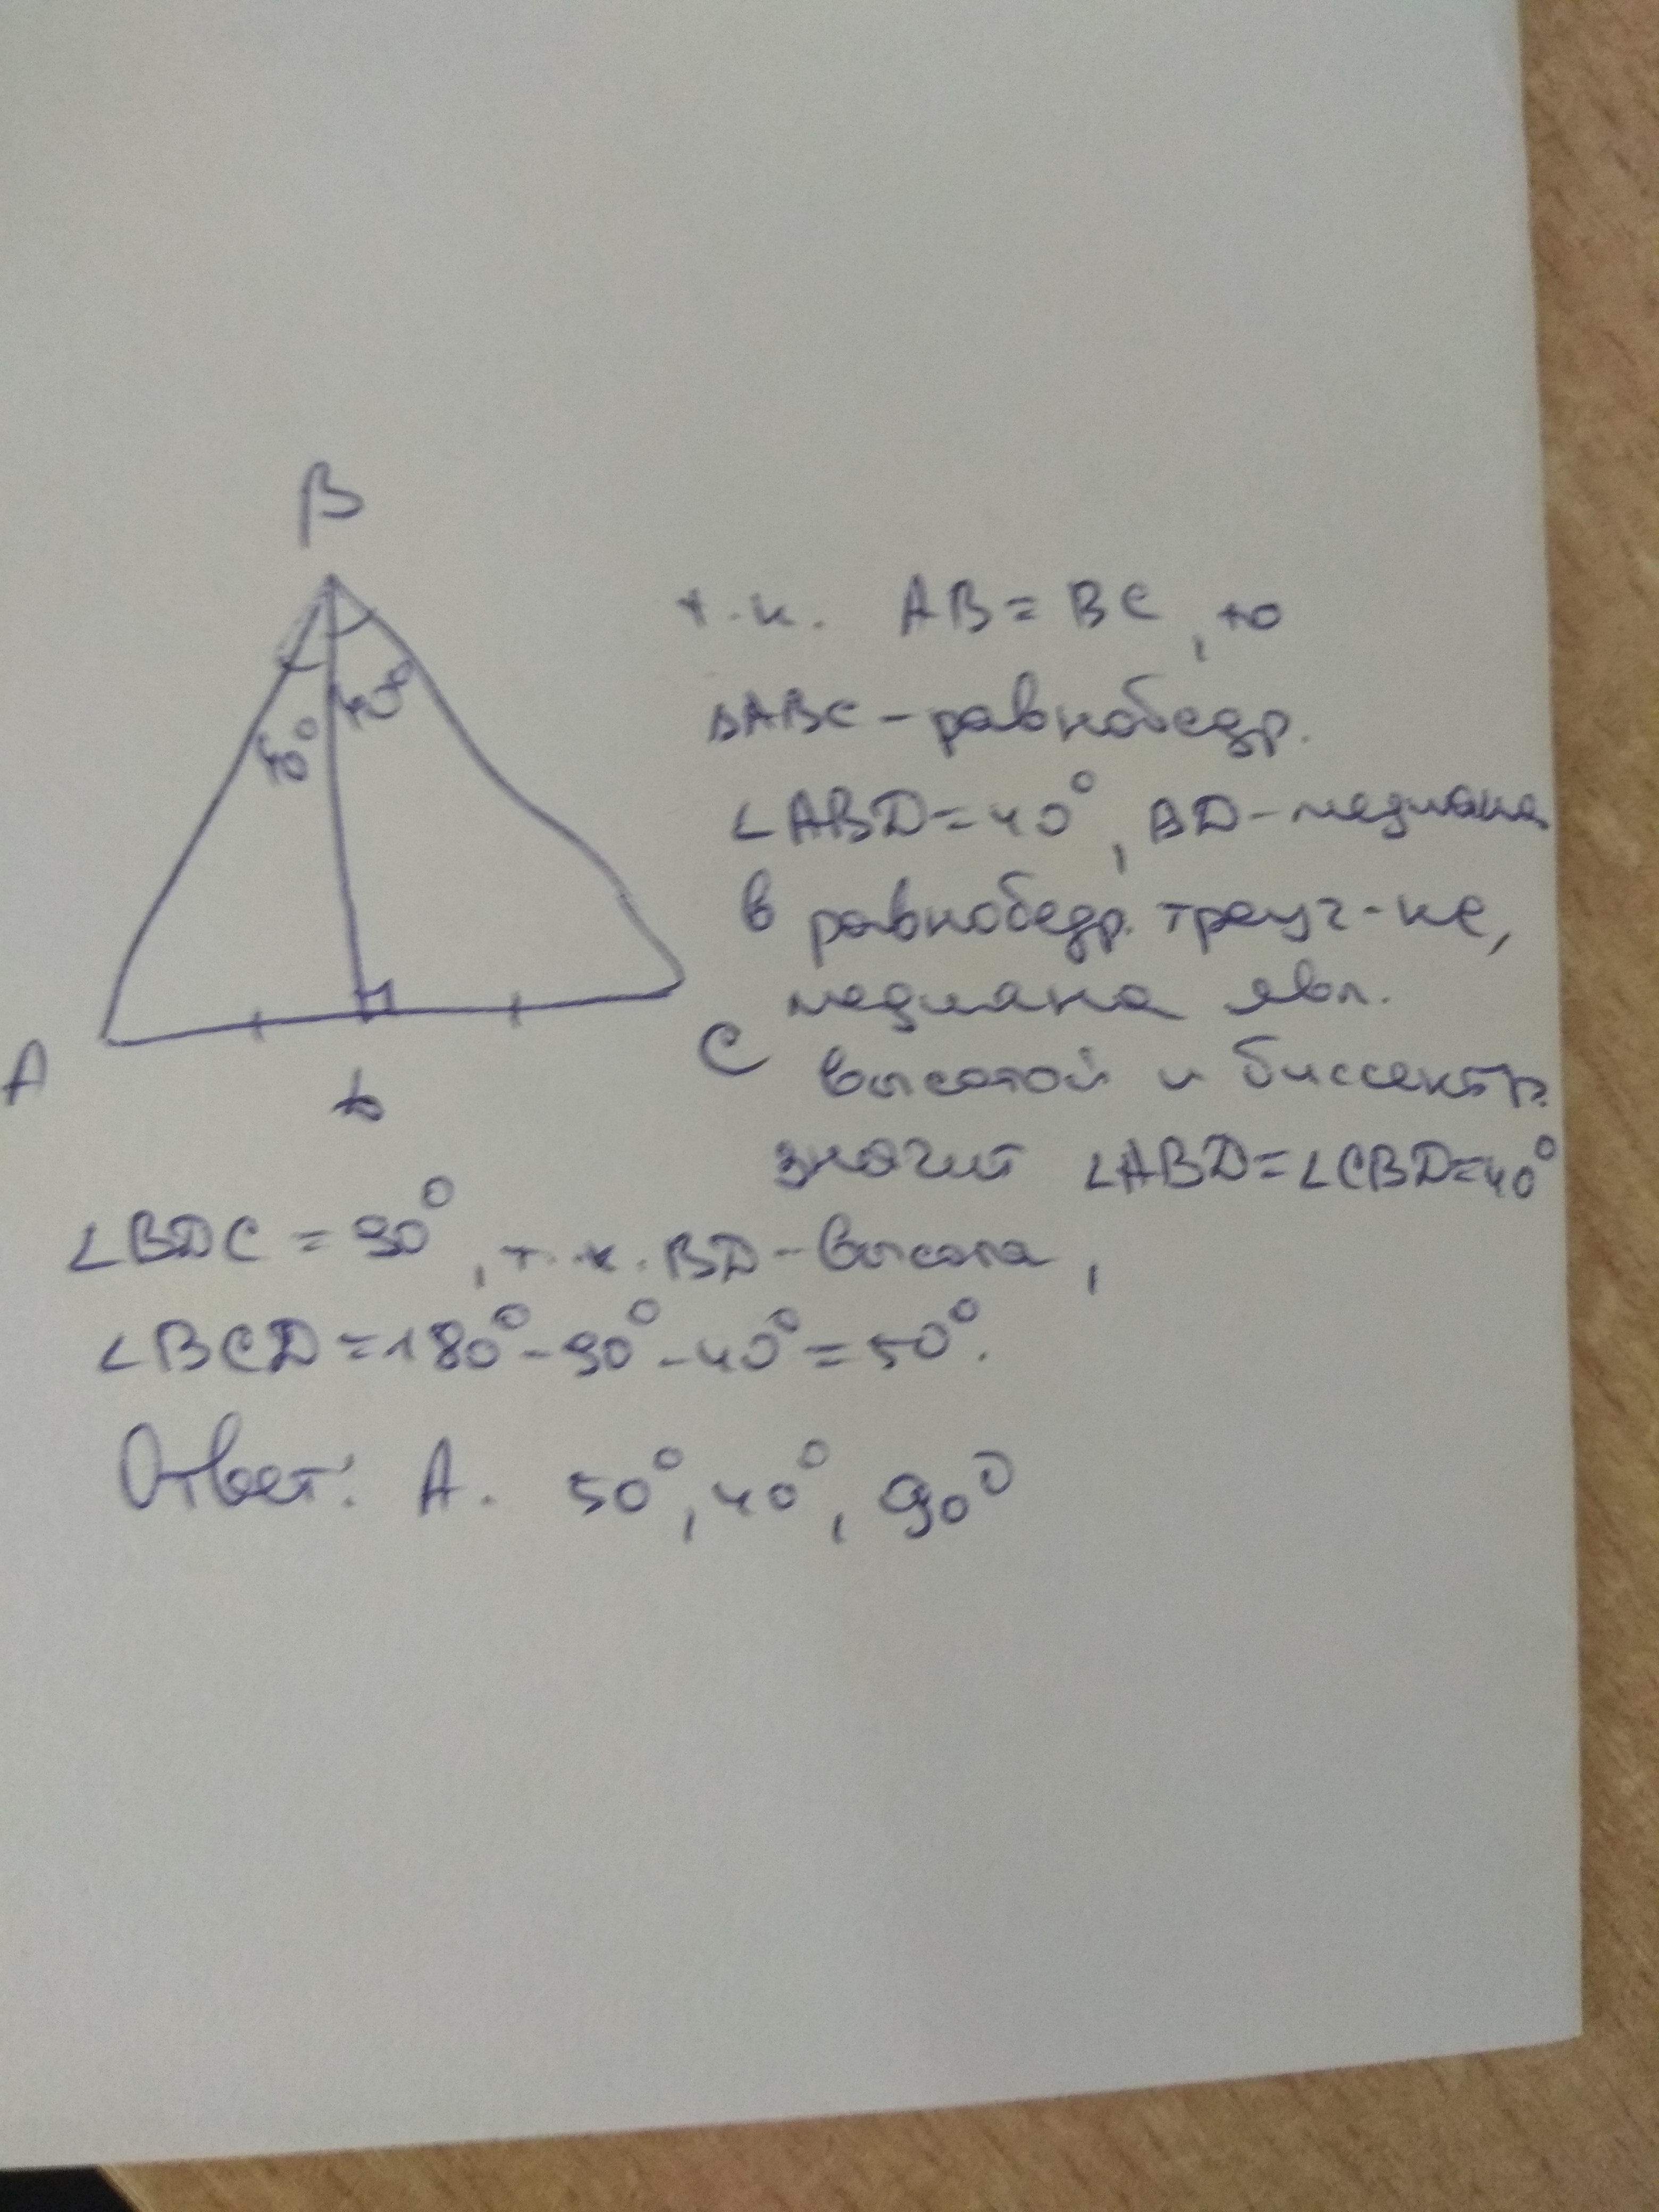 B
40°
40°
A
D
C
т.к. AB = BC, то
ΔABC - равнобедр.
∠ABD = 40°, BD - медиана
в равнобедр. треуг-ке,
медиана явл.
высотой и биссектр.
значит ∠ABD = ∠CBD = 40°
∠BDC = 90°, т.к. BD - высота,
∠BCD = 180° - 90° - 40° = 50°.
Ответ: А. 50°, 40°, 90°